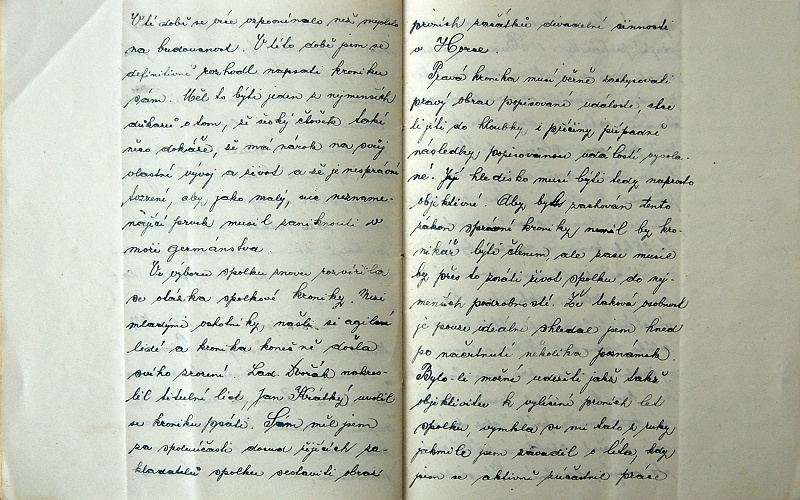 V té době se více vzpomínalo než myslelo
na budoucnost. V této době jsem se
definitivně rozhodl napsati kroniku
sám. Měl to býti jeden z nejmenších
důkazů o tom, že český člověk také
něco dokáže, že má nárok na svůj
vlastní vývoj a život a že je nesprávné
tvrzení, aby jako malý, nic nezname-
nající prvek musil zaniknouti v
moři germánstva.
Ve výboru spolku znovu rozvířila
se otázka spolkové kroniky. Mezi
mladými ochotníky, našli se agilní
lidé a kronika konečně došla
svého zrození. Lad. Dvořák nakres-
lil titulní list, Jan Krátký uvolil
se kroniku psáti. Sám měl jsem
za spoluúčasti dosud žijících za-
kladatelů spolku sestaviti obraz
prvních začátků divadelní činnosti
v Horce.
Pravá kronika musí věrně zachycovati
pravý obraz popisované události, chce
li jíti do hloubky, i příčiny, případně
následky, popisovanou událostí vyvola-
né. Její hledisko musí býti tedy naprosto
objektivní. Aby byl zachován tento
zákon správné kroniky, neměl by kro-
nikář býti členem, ale zase musil
by přes to znáti život spolku do nej-
menších podrobností. Že taková osobnost
je pouze ideálně shledal jsem hned
po načrtnutí několika poznámek.
Bylo-li možné udržeti jakž takž
objektivitu k vylíčení prvních let
spolku, vymkla se mi tato z ruky,
jakmile jsem zavadil o léta, kdy
jsem se aktivně zúčastnil práce